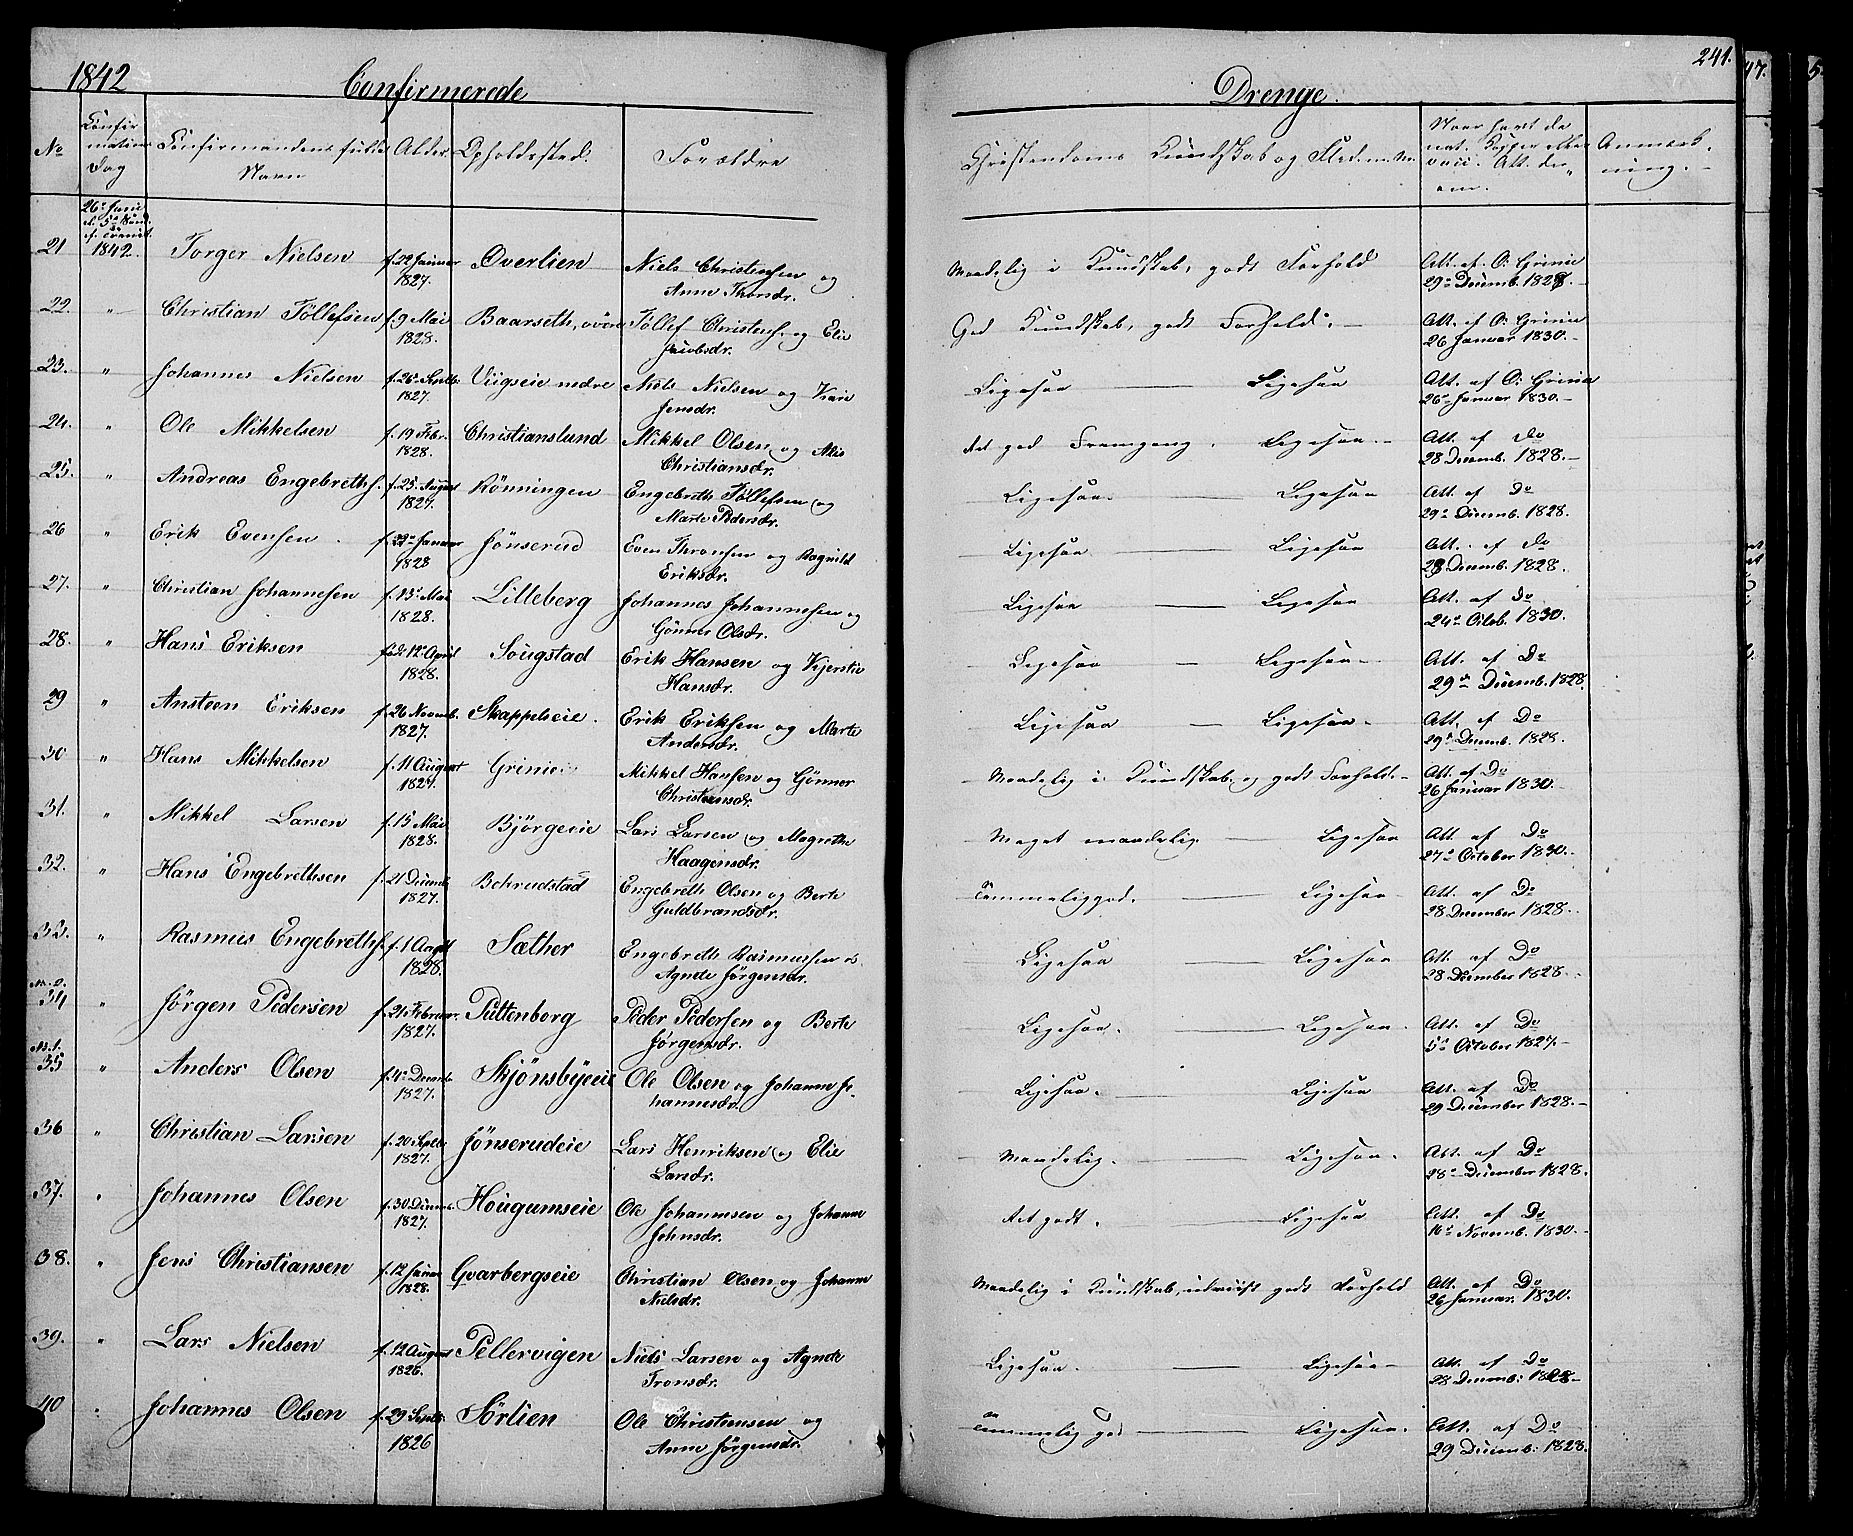 1842 Confirmerede Drenge. 241.
No Confirmations Dag Confirmandens fulde Navn Alder Opholdssted. Forældre Christendoms Kundskab og Naar havt de nat. Kopper eller vacc. Att. derom. Anmærkning.
26de Juni
1842.
21 Torger Nielsen f. 22 Januar 1827. Overlien Niels Christensen og Anne Thorsdr. Maadelig i Kundskab, godt Forhold Att. af O: Grinie 29de Decemb. 1828. –
22. " Christian Töllefsen f. 9 Mai 1828. Baarseth, øvre Töllef Christens. og Elie Jacobsdr. God Kundskab, godt Forhold. – Att. af O: Grinie 26 Januar 1830. –
23. " Johannes Nielsen f. 26 Septb. 1827. Viigseie nedre Niels Nielsen og Kari Jensdr. Ligesaa – Ligesaa Att. af O: Grinie 26de Januar 1830. –
24. " Ole Mikkelsen f. 19 Febr. 1828. Christianslund Mikkel Olsen og Alis Christiansdr. Ret god Fremgang. Ligesaa. – Att. af Do 28 Decemb. 1828. –
25. " Andreas Engebreths. f. 25. August 1827. Rönningen Engebreth Töllefsen og Marte Pedersdr. Ligesaa. – Ligesaa Att. af Do 29de Decemb. 1828.
26 " Erik Evensen. f. 22de Januar 1828 Jönserud Even Thronsen og Ragnild Eriksdr. Ligesaa – Ligesaa Att. af Do 28 Decemb. 1828.
27. " Christian Johannesen f. 15de Mai 1828. Lilleberg Johannes Johannesen og Gönner Olsdr. Ligesaa – Ligesaa Att. af Do 24de Octob. 1830.
28. " Hans Eriksen 12te April 1828. Sougstad Erik Hansen og Kjerstie Hansdr. Ligesaa – Ligesaa – Att. af Do 29de Decemb. 1828.
29 " Ansteen Eriksen f. 26 Novemb. 1827. Skappelseie. Erik Eriksen og Marte Andersdr. Ligesaa – Ligesaa. – Att. af Do 29de Decemb. 1828.
30 " Hans Mikkelsen f. 11 August 1827. Grinie Mikkel Hansen og Gönner Christensdr. Maadelig i Kundskab, og godt Forhold. – Att. af Do 26 Januar 1830. –
31. " Mikkel Larsen f. 15 Mai 1828. Bjørgeeie Lars Larsen og Magrethe Haagensdr. Meget maadelig. – Ligesaa Att. af Do 27de October 1830. –
32. " Hans Engebrethsen f. 21 Decemb 1827. Behrudstad Engebreth Olsen og Berte Guldbrandsdr. Temmelig god. – Ligesaa Att. af Do 28 December 1828. –
33. " Rasmus Engebreths. f. 1 Augst 1828. Sæther Engebreth Rasmussen og Agnete Jörgensdr. Ligesaa – Ligesaa Att. af Do 28 December 1828. –
34 " Jörgen Pedersen f. 21 Februar. 1827. Puttenborg Peder Pedersen og Berte Jørgensdr. Ligesaa. – Ligesaa. Att. af Do 5te October 1827. –
35 " Anders Olsen f. 4de Decemb 1827. Skjönsbyeeie Ole Olsen og Johanne Johannesdr. Ligesaa. – Ligesaa Att. af Do 29 December 1828. –
36 " Christian Larsen f. 20 Septb 1827. Jönserudeie Lars Henriksen og Elie Larsdr. Maadelig. – Ligesaa. Att. af Do 28de December 1828.
37. " Johannes Olsen f. 30 Decemb. 1827. Hougumseie Ole Johannesen og Johanne Johnsdr. Ret godt. – Ligesaa Att. af Do 16de Novemb. 1830. –
38. " Jens Christiansen f. 12 Januar 1828. Gvarbergseie Christian Olsen og Johanne Nielsdr. Maadelig i Kundskab, udviist godt Forhold Att. af Do 26 Januar. 1830.
39. " Lars Nielsen f. 12 August 1826. Pellervigen Niels Larsen og Agnete Tronsdr. Ligesaa. – Ligesaa – Att. af Do 28 Decemb: 1828 –
40 " Johannes Olsen f. 29 Septb. 1826 Sörlien Ole Christiansen og Anne Jörgensdr. Temmelig god – Ligesaa. Att. af Do 29 Decemb: 1828.